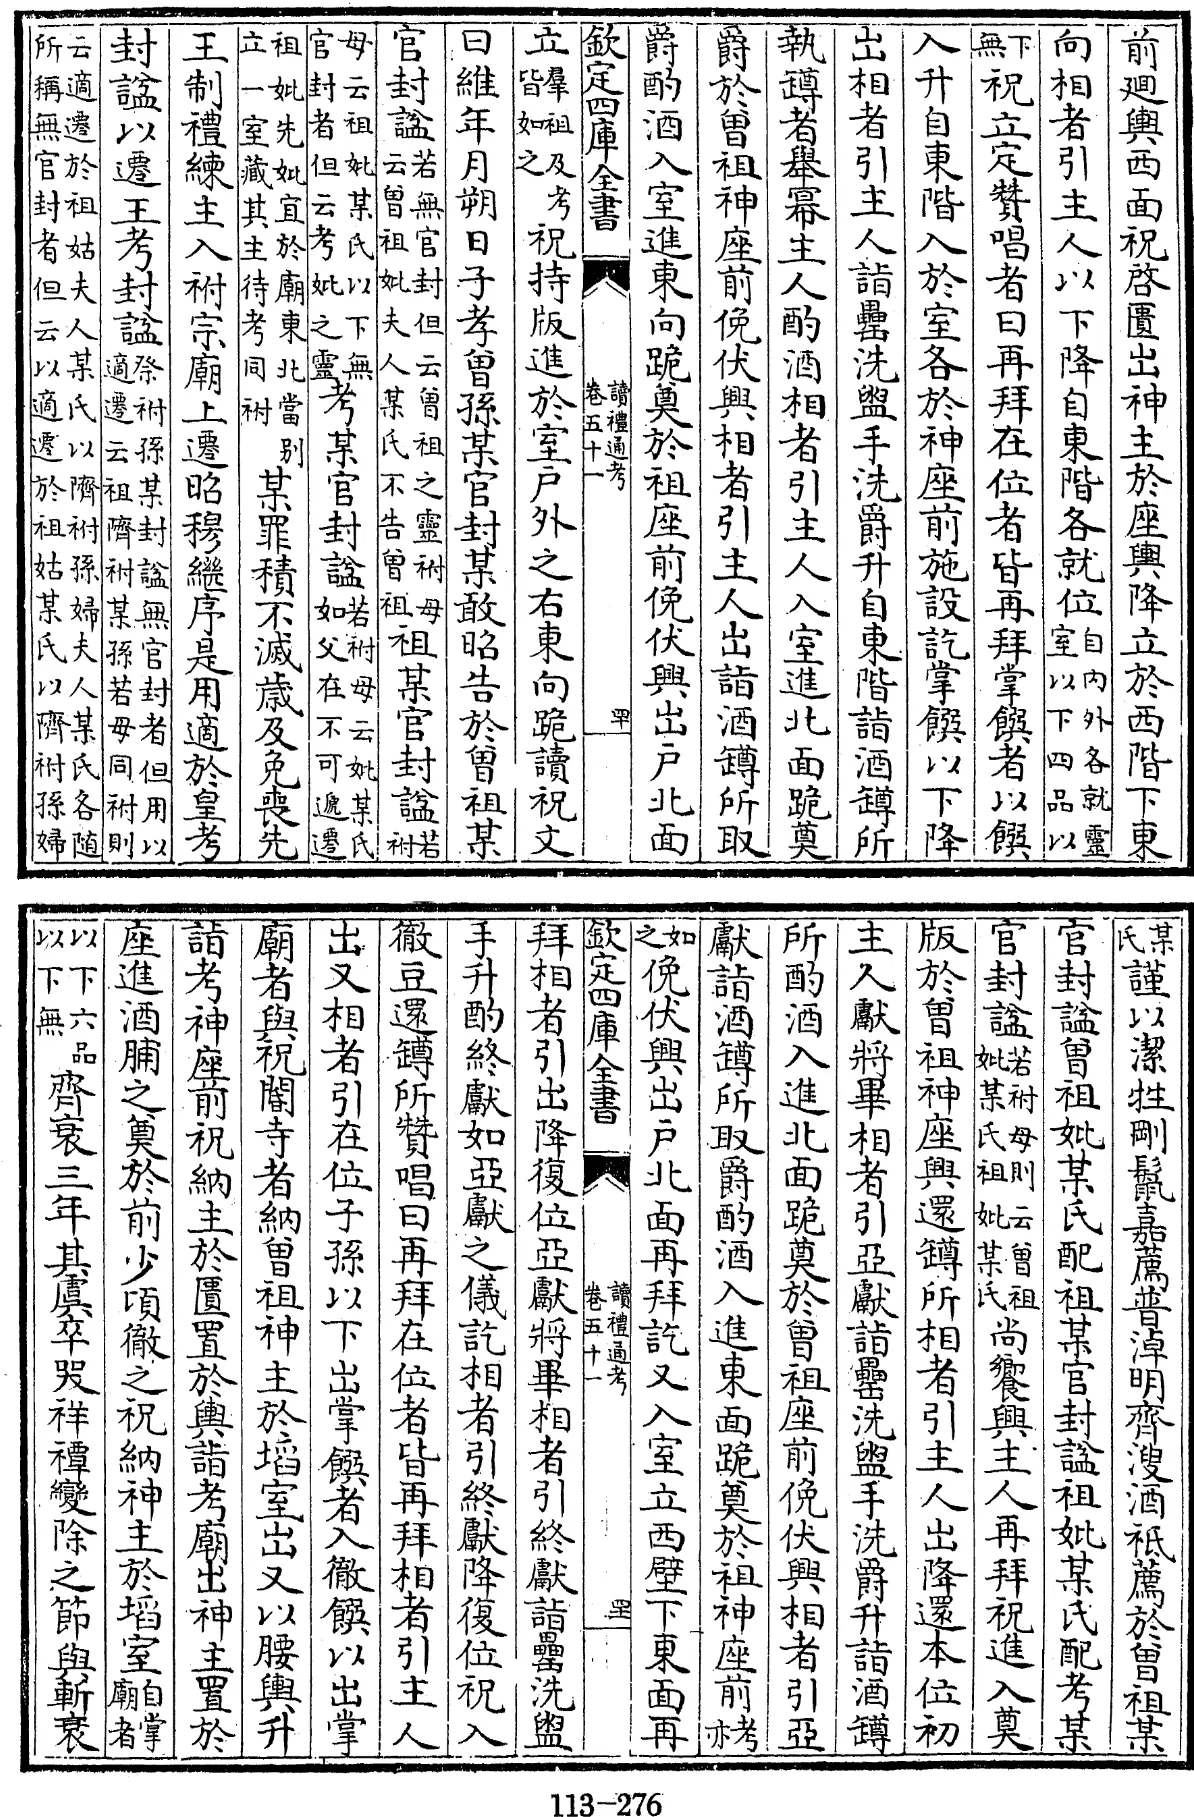 前廻輿西面祝啓匱出神主於座輿降立於西階下東
向相者引主人以下降自東階各就位自内外各就靈室以下四品以
下無祝立定賛唱者曰再拜在位者皆再拜掌饌者以饌
入升自東階入於室各於神座前施設訖掌饌以下降
出相者引主人詣罍洗盥手洗爵升自東階詣酒罇所
執罇者舉冪主人酌酒相者引主人入室進北面跪奠
爵於曾祖神座前俛伏興相者引主人出詣酒罇所取
爵酌酒入室進東向跪奠於祖座前俛伏興出戶北面
欽定四庫全書
讀禮通考
卷五十一
罕
立羣祖及考皆如之祝持版進於室戶外之右東向跪讀祝文
曰維年月朔日子孝曾孫某官封某敢昭告於曾祖某
官封諡若無官封但云曾祖之靈祔母云曾祖妣夫人某氏不告曾祖祖某官封諡若祔
母云祖妣某氏以下無官封者但云考妣之靈考某官封諡若祔母云妣某氏如父在不可遞遷
祖妣先妣宜於廟東北當别立一室藏其主待考同祔某罪積不滅歲及免喪先
王制禮練主入祔宗廟上遷昭穆繼序是用適於皇考
封諡以遷王考封諡祭祔孫某封諡無官封者但用以適遷云祖隮祔某孫若母同祔則
云適遷於祖姑夫人某氏以隮祔孫婦夫人某氏各隨所稱無官封者但云以適遷於祖姑某氏以隮祔孫婦
某氏謹以潔牲剛鬛嘉薦普淖明齊溲酒祗薦於曾祖某
官封諡曾祖妣某氏配祖某官封諡祖妣某氏配考某
官封諡若祔母則云曾祖妣某氏祖妣某氏尚饗興主人再拜祝進入奠
版於曾祖神座興還罇所相者引主人出降還本位初
主人獻將畢相者引亞獻詣罍洗盥手洗爵升詣酒罇
所酌酒入進北面跪奠於曾祖座前俛伏興相者引亞
獻詣酒罇所取爵酌酒入進東面跪奠於祖神座前考亦
如之俛伏興出戶北面再拜訖又入室立西壁下東面再
欽定四庫全書
讀禮通考
卷五十一
拜相者引出降復位亞獻將畢相者引終獻詣罍洗盥
手升酌終獻如亞獻之儀訖相者引終獻降復位祝入
徹豆還罇所賛唱曰再拜在位者皆再拜相者引主人
出又相者引在位子孫以下出掌饌者入徹饌以出掌
廟者與祝閽寺者納曾祖神主於埳室出又以腰輿升
詣考神座前祝納主於匱置於輿詣考廟出神主置於
座進酒脯之奠於前少頃徹之祝納神主於埳室自掌廟者
以下六品以下無齊衰三年其虞卒哭祥禫變除之節與斬衰
113-276